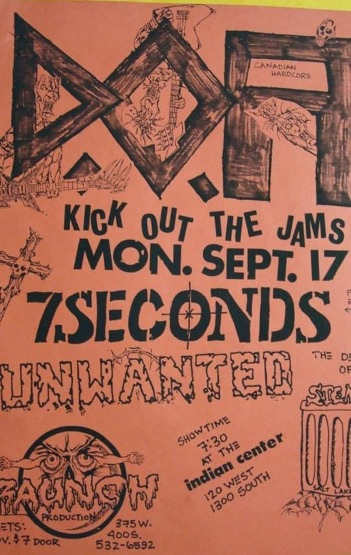 D.O.A
CANADIAN
HARDCORE
KICK OUT THE JAMS
MON. SEPT. 17
7SECONDS
UNWANTED
THE
OF
SHOWTIME
7:30
AT THE
indian center
120 WEST
1300 SOUTH
SALT LAKE
PRODUCTION
$7 DOOR
375 W.
400 S.
532-6592